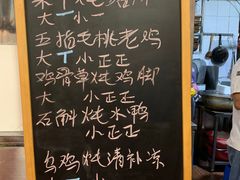 大 小一
五指毛桃老鸡
大丅 小正正
鸡骨草炖鸡脚
大 小正正
石斛炖水鸭
小正正
乌鸡炖清补凉